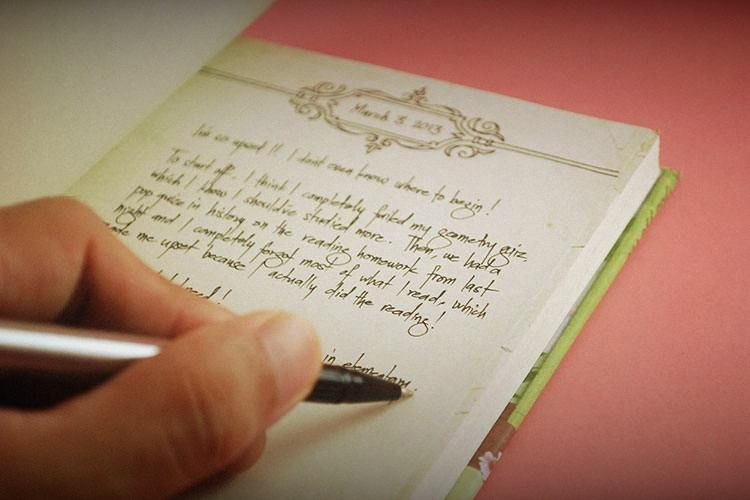 March 3, 2013
I'm so upset!! I don't even know where to begin!
To start off, I think I completely failed my geometry quiz,
which I know I should've studied more. Then, we had a
pop quiz in history on the reading homework from last
night and I completely forgot most of what I read, which
made me upset because I actually did the reading!
in elementary.